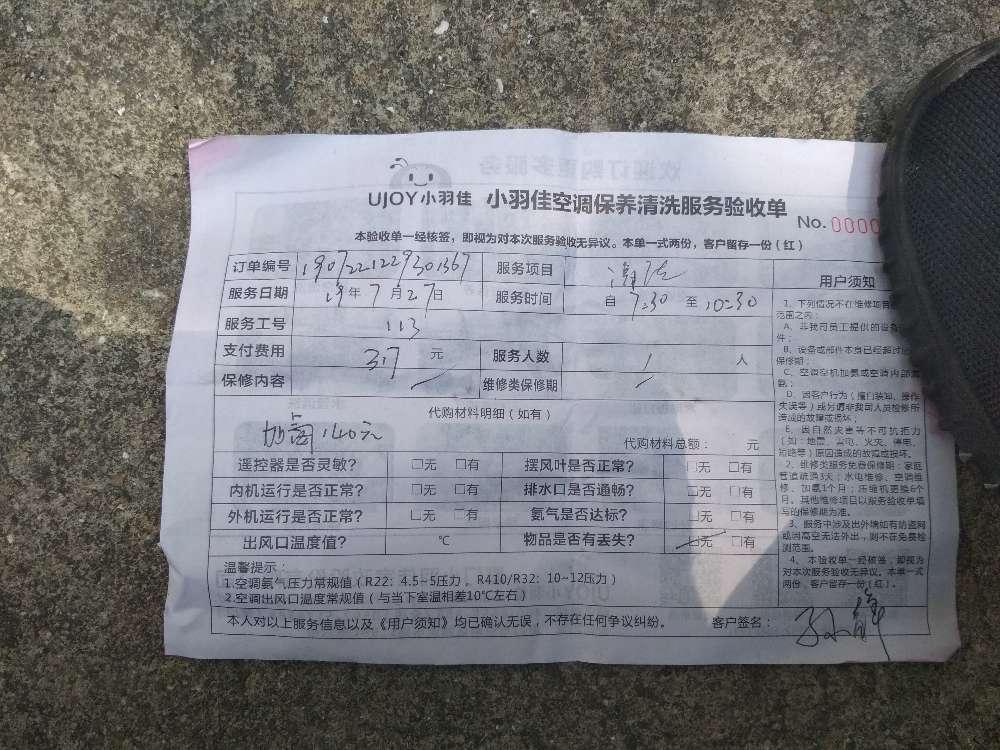 UJOY小羽佳 小羽佳空调保养清洗服务验收单
No. 0000
本验收单一经核签，即视为对本次服务验收无异议。本单一式两份，客户留存一份（红）
订单编号 服务项目 清洗
服务日期 19年7月27日 服务时间 自7:30至10:30
服务工号 113
支付费用 317元 服务人数 1人
保修内容 维修类保修期
代购材料明细（如有）
140元
代购材料总额： 元
遥控器是否灵敏? □无 □有 摆风叶是否正常? □无 □有
内机运行是否正常? □无 □有 排水口是否通畅? □无 □有
外机运行是否正常? □无 □有 氨气是否达标? □无 □有
出风口温度值? ℃ 物品是否有丢失? □无 □有
温馨提示：
1.空调氨气压力常规值（R22：4.5~5压力，R410/R32：10~12压力）
2.空调出风口温度常规值（与当下室温相差10℃左右）
本人对以上服务信息以及《用户须知》均已确认无误，不存在任何争议纠纷。 客户签名：
用户须知
1、下列情况不在维修项目
范围之内：
A、非我司员工提供的设备
件；
B、设备或部件本身已经超过
保修期；
C、空调空机加氨或空调内部
D、因客户行为（擅自装卸、操作
失误等）或另请非我司人员检修所
造成的故障或损坏；
E、因自然灾害等不可抗拒力
（如：地震、雷电、火灾、停电、
短路等）原因造成的故障或损坏。
2、维修类服务免费保修期：家庭
管道疏通3天；水电维修、空调维
修、加氨1个月；压缩机更换6个
月。其他维修项目以服务验收单填
写的保修期为准。
3、服务中涉及出外墙如有防盗网
或因高空无法外出，则不在免费检
测范围。
4、本验收单一经核签，即视为
对本次服务验收无异议。本单一式
两份，客户留存一份（红）。